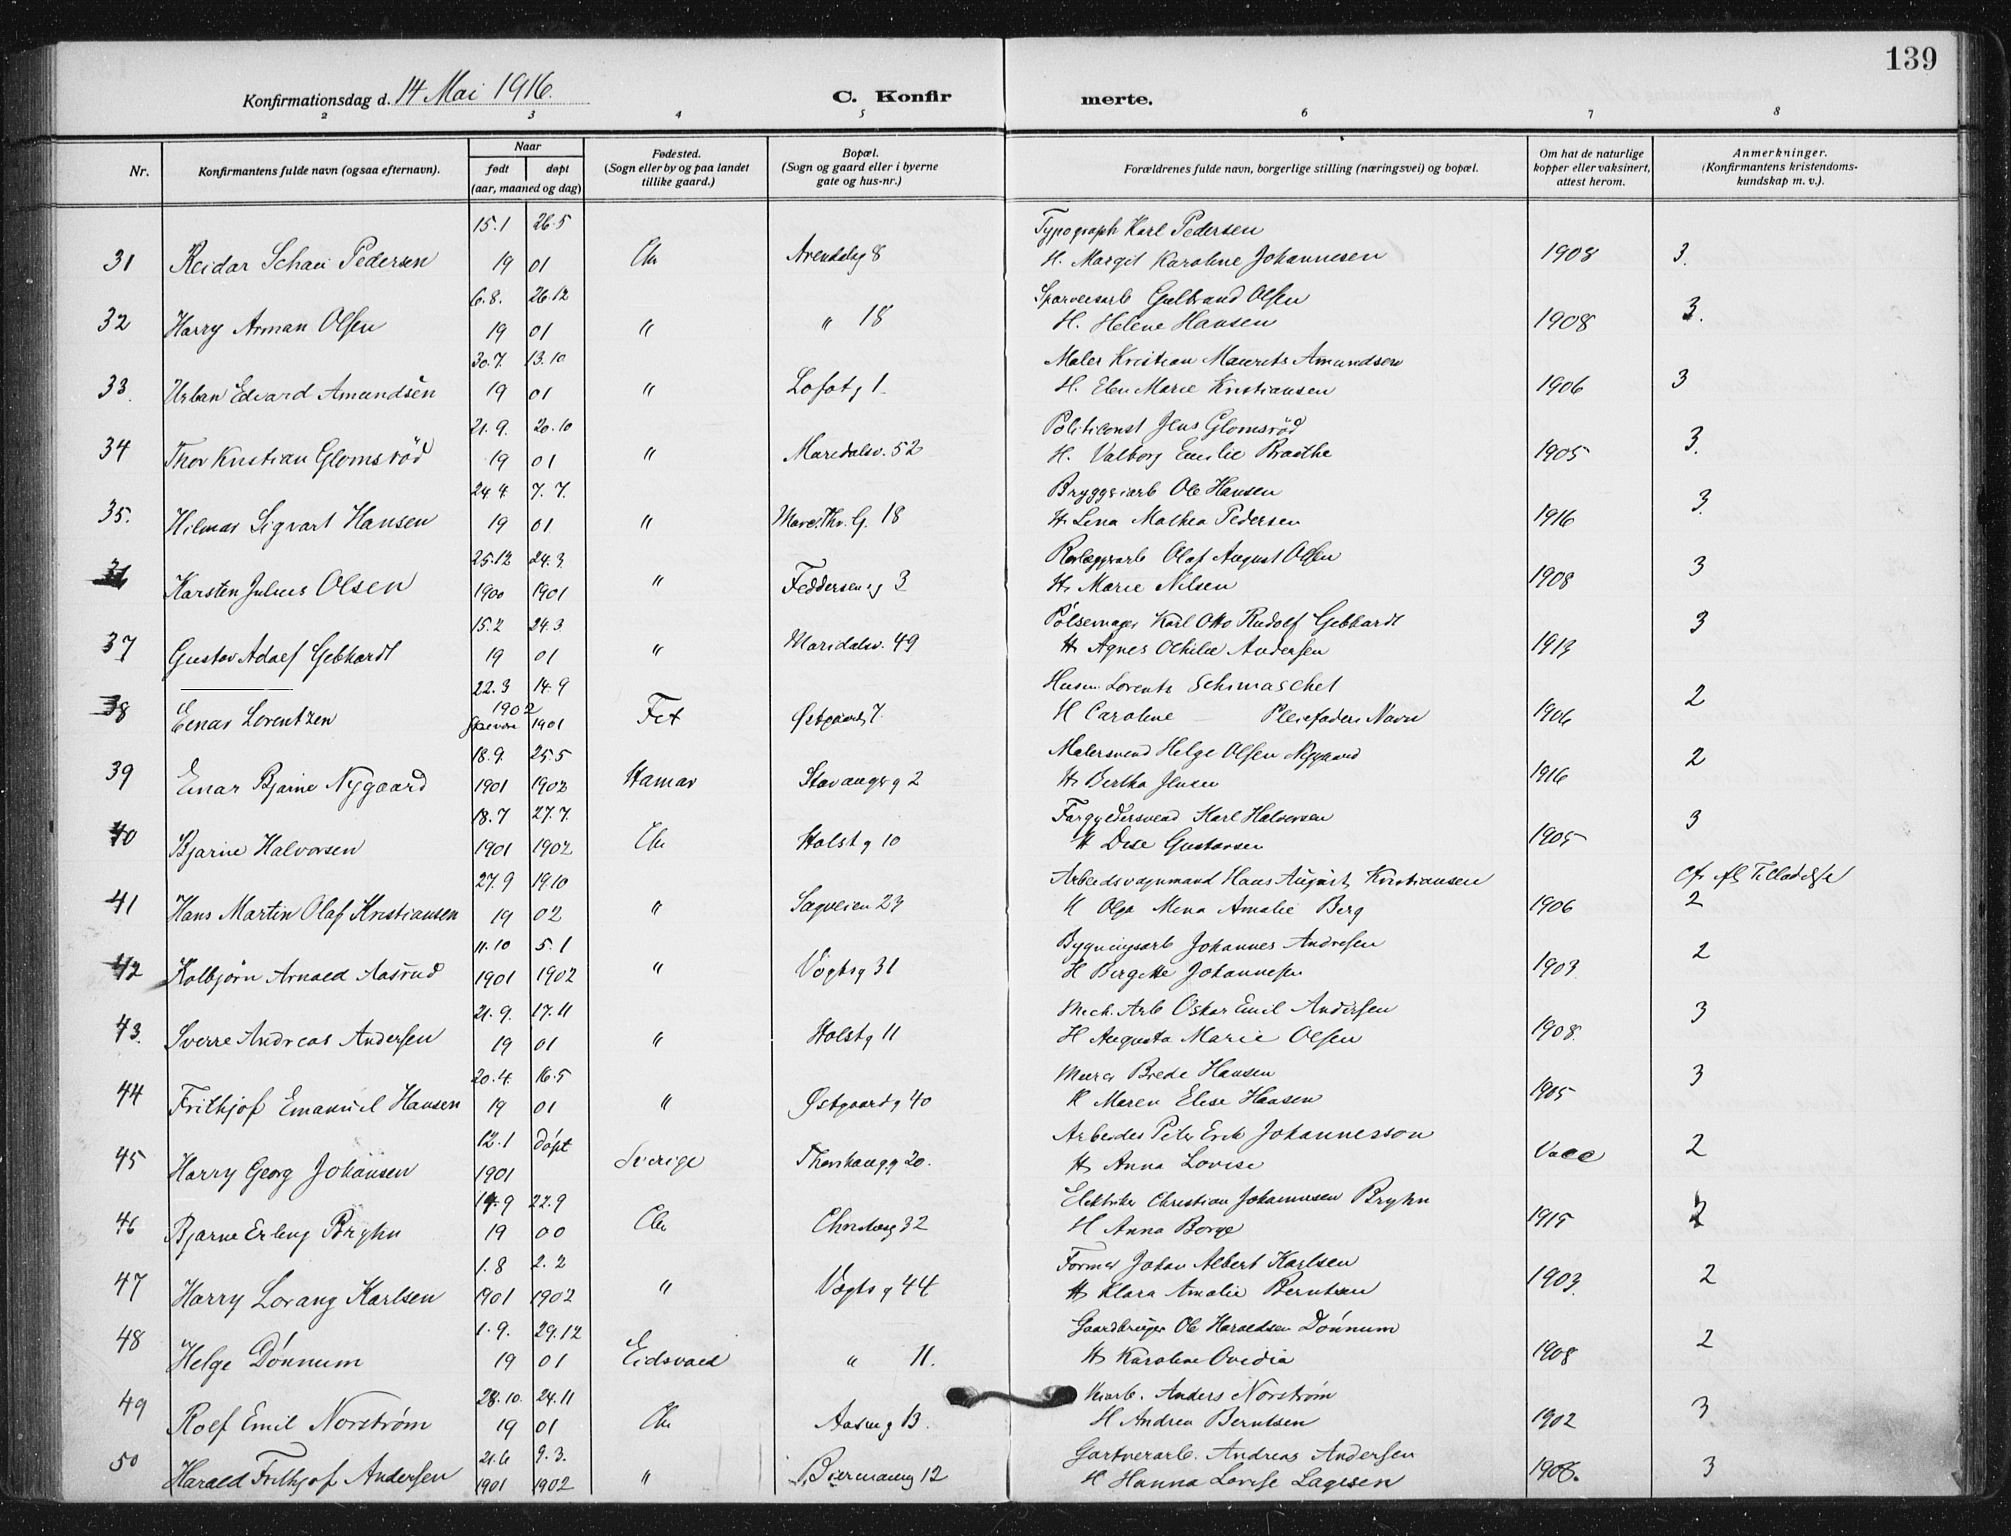 139
Konfirmationsdag d. 14 Mai 1916. C. Konfirmerte.
2 3 4 5 6 7 8
Nr. Konfirmantens fulde navn (ogsaa efternavn). Naar født døpt (aar, maaned og dag) Fødested. (Sogn eller by og paa landet tillike gaard.) Bopæl. (Sogn og gaard eller i byerne gate og hus-nr.) Forældrenes fulde navn, borgerlige stilling (næringsvei) og bopæl. Om hat de naturlige kopper eller vaksinert, attest herom. Anmerkninger. (Konfirmantens kristendomskundskap m. v.).
15.1 26.5 Typograph Karl Pedersen
31 Reidar Schau Pedersen 19 01 Chr Arendalsg 8 H. Margit Karoline Johannesen 1908 3.
6.8. 26.12 Sporveisarb Gulbrand Olsen
32 Harry Arman Olsen 19 01 " " 18 H. Helene Hansen 1908 3.
30.7. 13.10 Maler Kristian Maurits Amundsen
33. Urban Edvard Amundsen 19 01 " Lofotg 1. H. Elen Marie Kristiansen 1906 3
21.9. 20.10 Politiconst Jens Glomsröd
34 Thor Kristian Glomsröd 19 01 " Maridalsv. 52 H. Valborg Emilie Braathe 1905 3.
24.4. 7.7. Bryggeriarb Ole Hansen
35. Hilmar Sigvart Hansen 19 01 " 18 H. Lina Mathea Pedersen 1916 3.
25.12 24.3 Rørlæggerarb Olaf August Olsen
36 Karsten Julius Olsen 1900 1901 " Feddersensg 3 H. Marie Nilsen 1908 3
15.2 24.3. Pølsemager Karl Otto Rudolf Gebhardt
37 Gustav Adolf Gebhardt 19 01 " Maridalsv. 49 H. Agnes Othilie Andersen 1913 3
22.3 14.9 Lorentz Schimaschet
38 Einar Lorentzen 1902 1901 Fet Østgaardsg 7. H Caroline Pleiefaders Navn 1906 2
18.9. 25.5 Malersvend Helge Olsen Nygaard
39 Einar Bjarne Nygaard 1901 1902 Hamar Stavangerg 2 H. Bertha Jensen 1916 2
18.7 27.7. Forgyldersvend Karl Halvorsen
40 Bjarne Halvorsen 1901 1902 Chr Holstg 10 H Gustavsen 1905 3
27.9 19.10 Arbeidsvognmand Hans August Kristiansen cfr Tilladelse
41 Hans Martin Olaf Kristiansen 19 02 " Sagveien 23 H Olga Mina Amalie Berg 1906 2
11.10 5.1 Bygningsarb Johannes Andresen
42 Kolbjørn Arnold Aasrud 1901 1902 " Vogtsg 31 H Bergitte Johannesen 1903. 2
21.9. 17.11 Mech. Arb Oskar Emil Andersen
43. Sverre Andreas Andersen 19 01 " Holstg 11 H Augusta Marie Olsen 1908. 3
20.4. 16.5 Murer Brede Hansen
44 Frithjof Emanuel Hansen 19 01 " Østgaardg 40 H Maren Elise Hansen 1905 3
12.1 døpt Arbeider Peter Erik Johannesson
45 Harry Georg Johansen 1901 Sverige Thorshaugg 20. H. Anna Lovise Vacc 2
14.9 22.9 Elektriker Christian Johannesen Bryhn
46 Bjarne Erling Bryhn 19 00 Chr 32 H Anna Borge 1915 2
1.8 2.2 Former Johan Albert Karlsen
47 Harry Lorang Karlsen 1901 1902 " Vogtsg 44 H. Klara Amalie Berntsen 1903. 2
1.9. 29.12 Gaardbruger Ole Haraldsen Dønnum
48 Helge Dønnum 19 01 Eidsvold " 11. H. Karoline Ovedia 1908 2
28.10. 24.11 Anders Norstrøm
49 Rolf Emil Norstrøm 19 01 Chr Aasensg 13. H Andrea Berntsen 1902 3
21.6 9.3. Gartnerarb. Andreas Andersen
50 Harald Frithjof Andersen 1901 1902 " Biermansg 12 H Hanna Lovise Lagesen 1908. 3